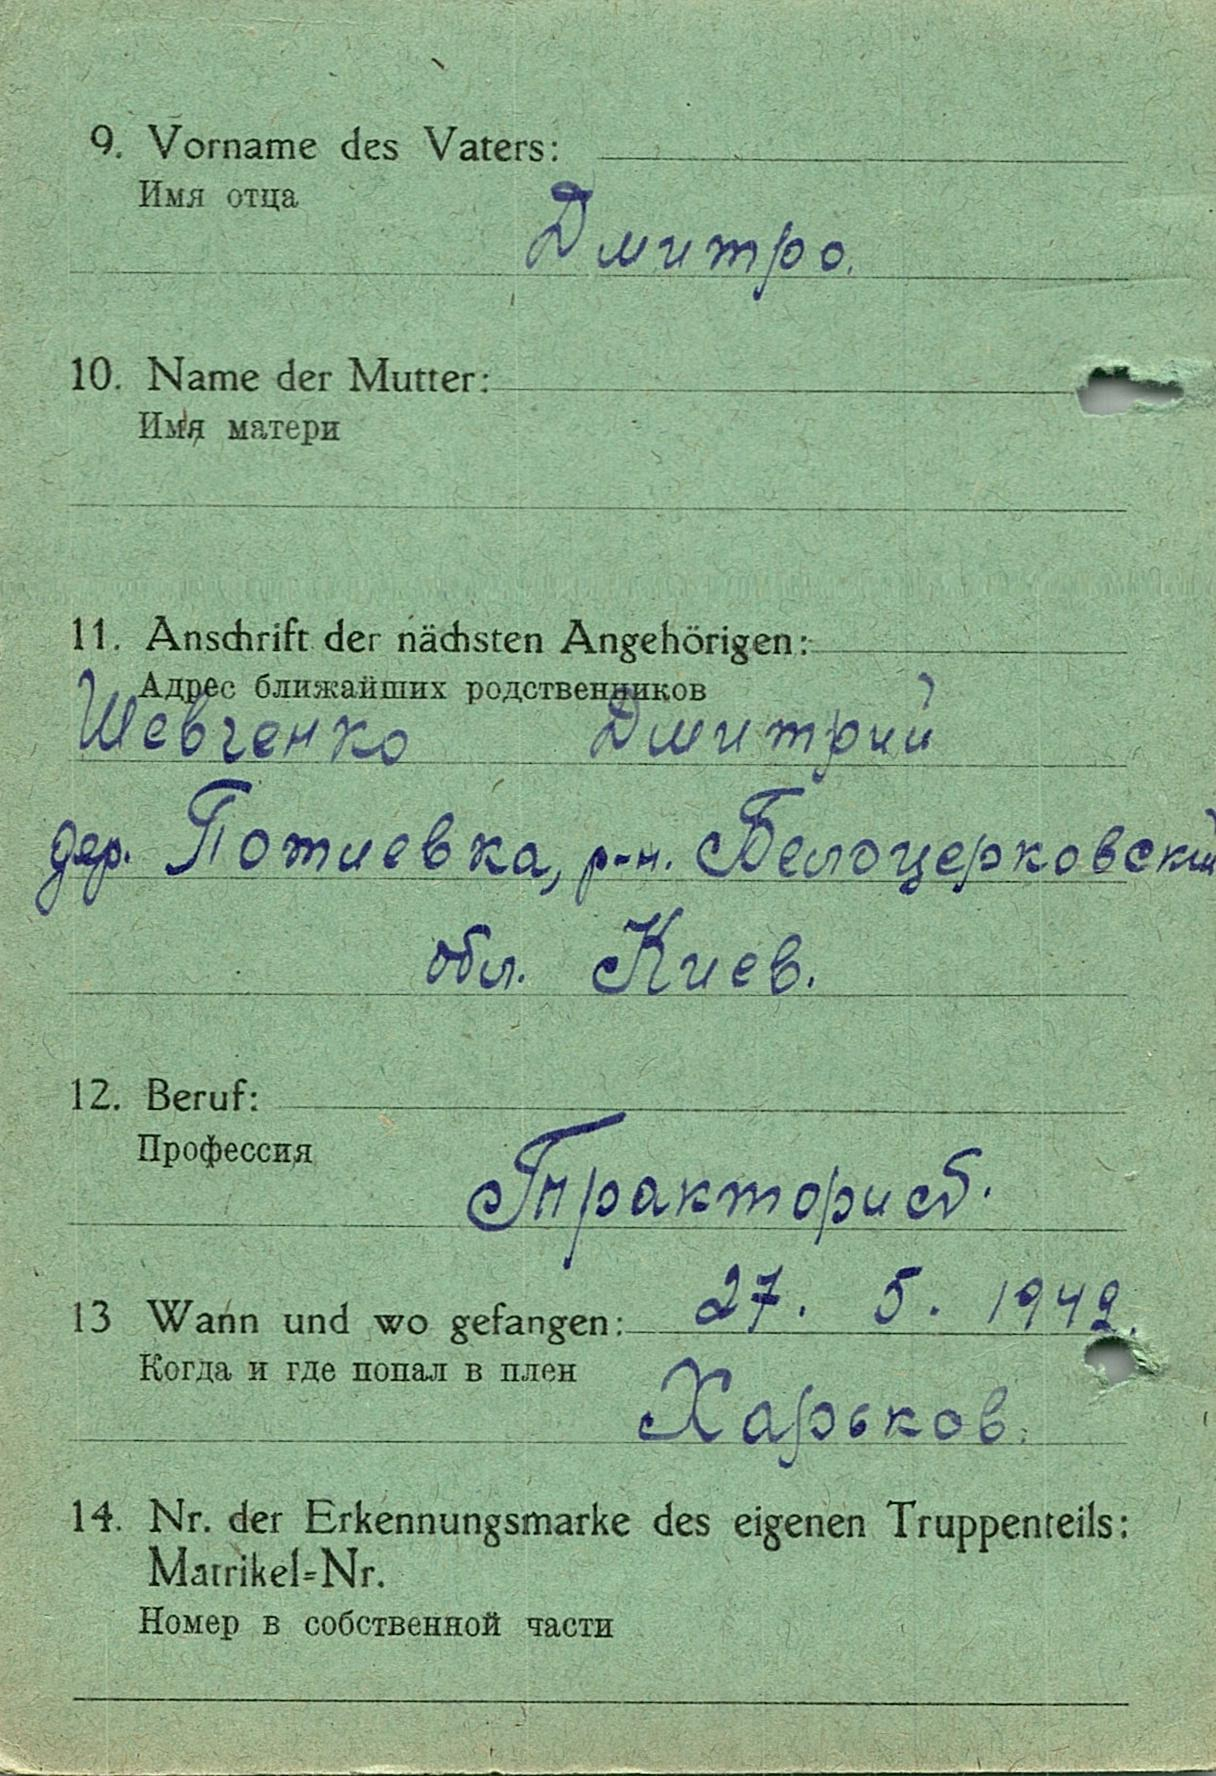 9. Vorname des Vaters:
Имя отца
Дмитро.
10. Name der Mutter:
Имя матери
11. Anschrift der nächsten Angehörigen:
Адрес ближайших родственников
Шевченко Дмитрий
дер. Потиевка, р-н. Белоцерковский
обл. Киев.
12. Beruf:
Профессия
Тракторист.
13 Wann und wo gefangen: 27. 5. 1942.
Когда и где попал в плен
Харьков.
14. Nr. der Erkennungsmarke des eigenen Truppenteils:
Matrikel=Nr.
Номер в собственной части